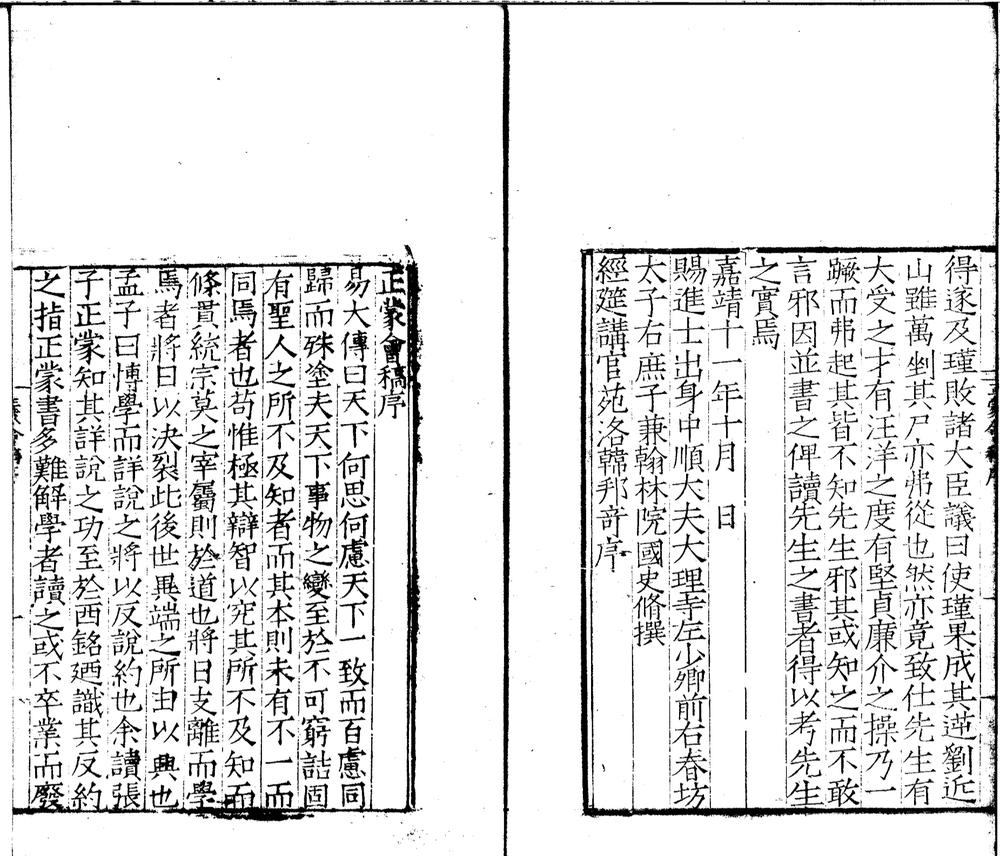 得遂及瑾敗諸大臣議曰使瑾果成其逆劉近
山雖萬剉其尸亦弗從也然亦竟致仕先生有
大受之才有汪洋之度有堅貞廉介之操乃一
蹶而弗起其皆不知先生邪其或知之而不敢
言邪因並書之俾讀先生之書者得以考先生
之實焉
嘉靖十一年十月　日
賜進士出身中順大夫大理寺左少卿前右春坊
太子右庶子兼翰林院國史脩撰
經筵講官苑洛韓邦奇序
正蒙會稿序
易大傳曰天下何思何慮天下一致而百慮同
歸而殊塗夫天下事物之變至於不可窮詰固
有聖人之所不及知者而其本則未有不一而
同焉者也苟惟極其辯智以究其所不及知而
條貫統宗莫之宰屬則於道也將日支離而學
焉者將日以決裂此後世異端之所由以興也
孟子曰博學而詳說之將以反說約也余讀張
子正蒙知其詳說之功至於西銘廼識其反約
之指正蒙書多難解學者讀之或不卒業而廢